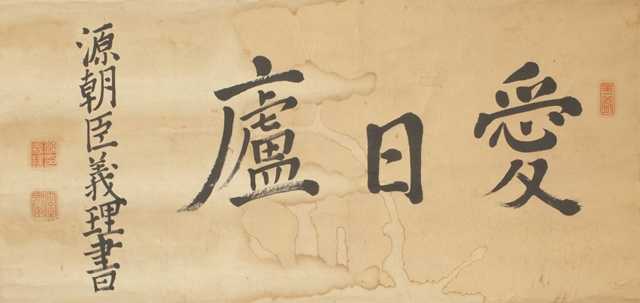 愛日廬
源朝臣義理書